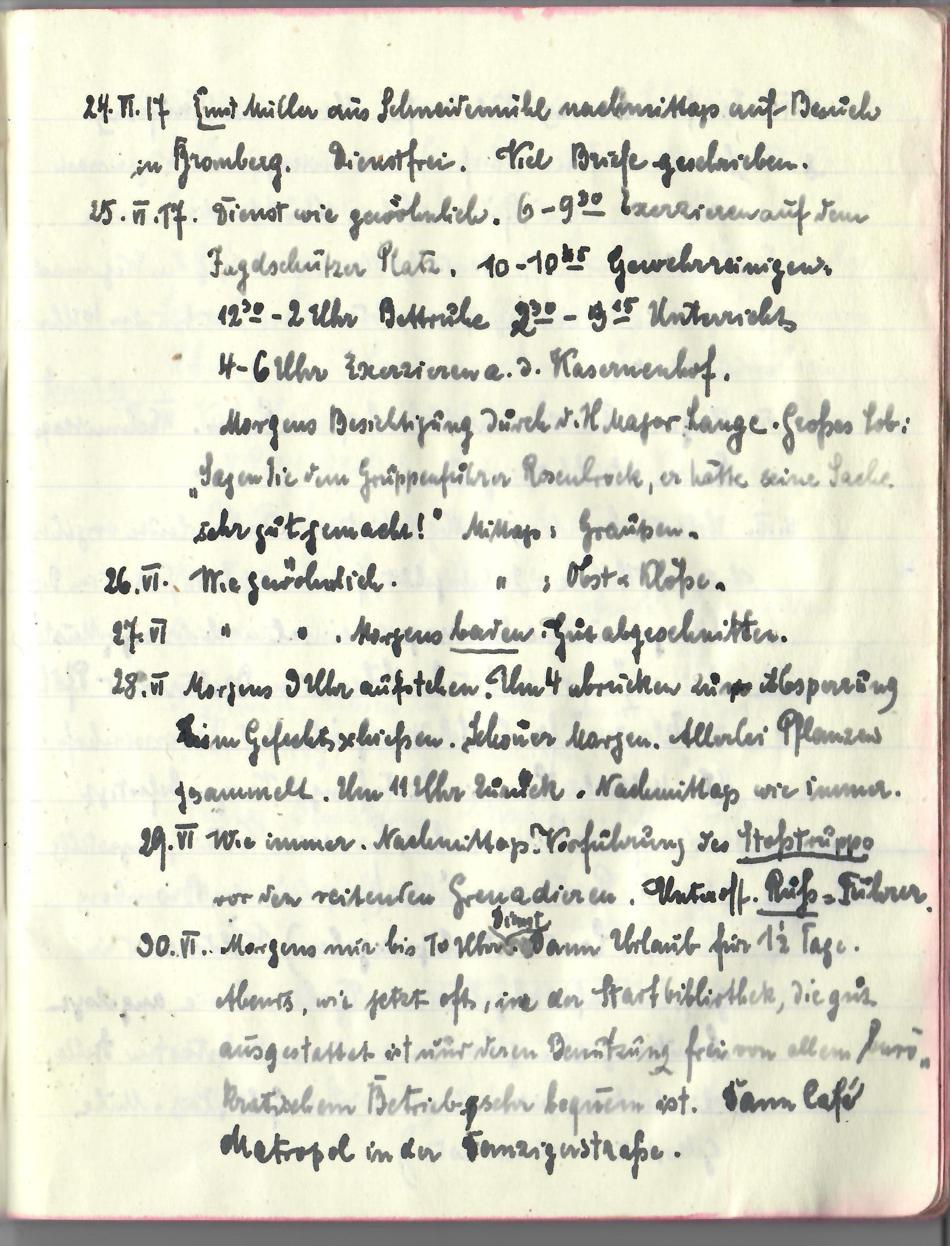 24.VI.17 Emil Müller aus Schneidemühl nachmittags auf Besuch
in Bromberg. Dienstfrei. Viel Briefe geschrieben.
25.VI.17. Dienst wie gewöhnlich. 6-9³⁰ Exerzieren auf dem
Jagdschützer Platz. 10-10⁴⁵ Gewehrreinigen.
12³⁰-2 Uhr Bettruhe 2³⁰-3¹⁵ Unterricht
4-6 Uhr Exerzieren a. d. Kasernenhof.
Morgens Besichtigung durch d. H Major Lange. Großes Lob:
„Sagen Sie dem Gruppenführer Rosenbrock, er hätte seine Sache
sehr gut gemacht!" Mittags: Graupen.
26.VI. Wie gewöhnlich. " : Obst & Klöße.
27.VI " " . Morgens baden. Gut abgeschnitten.
28.VI Morgens 3 Uhr aufstehen. Um 4 abrücken zur Absperrung
beim Gefechtsschießen. Schöner Morgen. Allerlei Pflanzen
gesammelt. Um 11 Uhr zurück. Nachmittags wie immer.
29.VI Wie immer. Nachmittags: Vorführung des Stoßtrupps
vor den reitenden Grenadieren. Unteroff. Ruß = Führer.
30.VI. Morgens nur bis 10 Uhr Dienst Dann Urlaub für 1½ Tage.
Abends, wie jetzt oft, in der Stadtbibliothek, die gut
ausgestattet ist und deren Benutzung frei von allem büro„
kratischem Betrieb sehr bequem ist. Dann Café
Metropol in der Danzigerstraße.